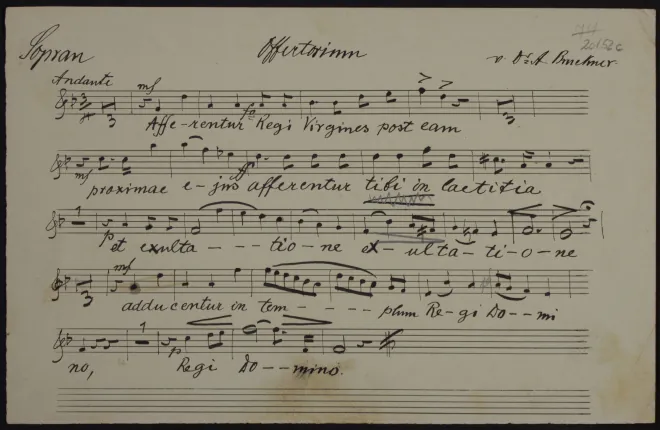 Sopran Offertorium v. Dr. A. Bruckner.
20152c
Andante
mf f
3 3
Affe-rentur Regi Virgines post eam
mf ff
proximae e-jus afferentur tibi in laetitia
1
p
et exulta - - - tio-ne ex-ulta-ti-o-ne
mf
3
adducentur in tem - - - - - plum Re-gi Do--mi
1
p
no, Regi Do---mino.